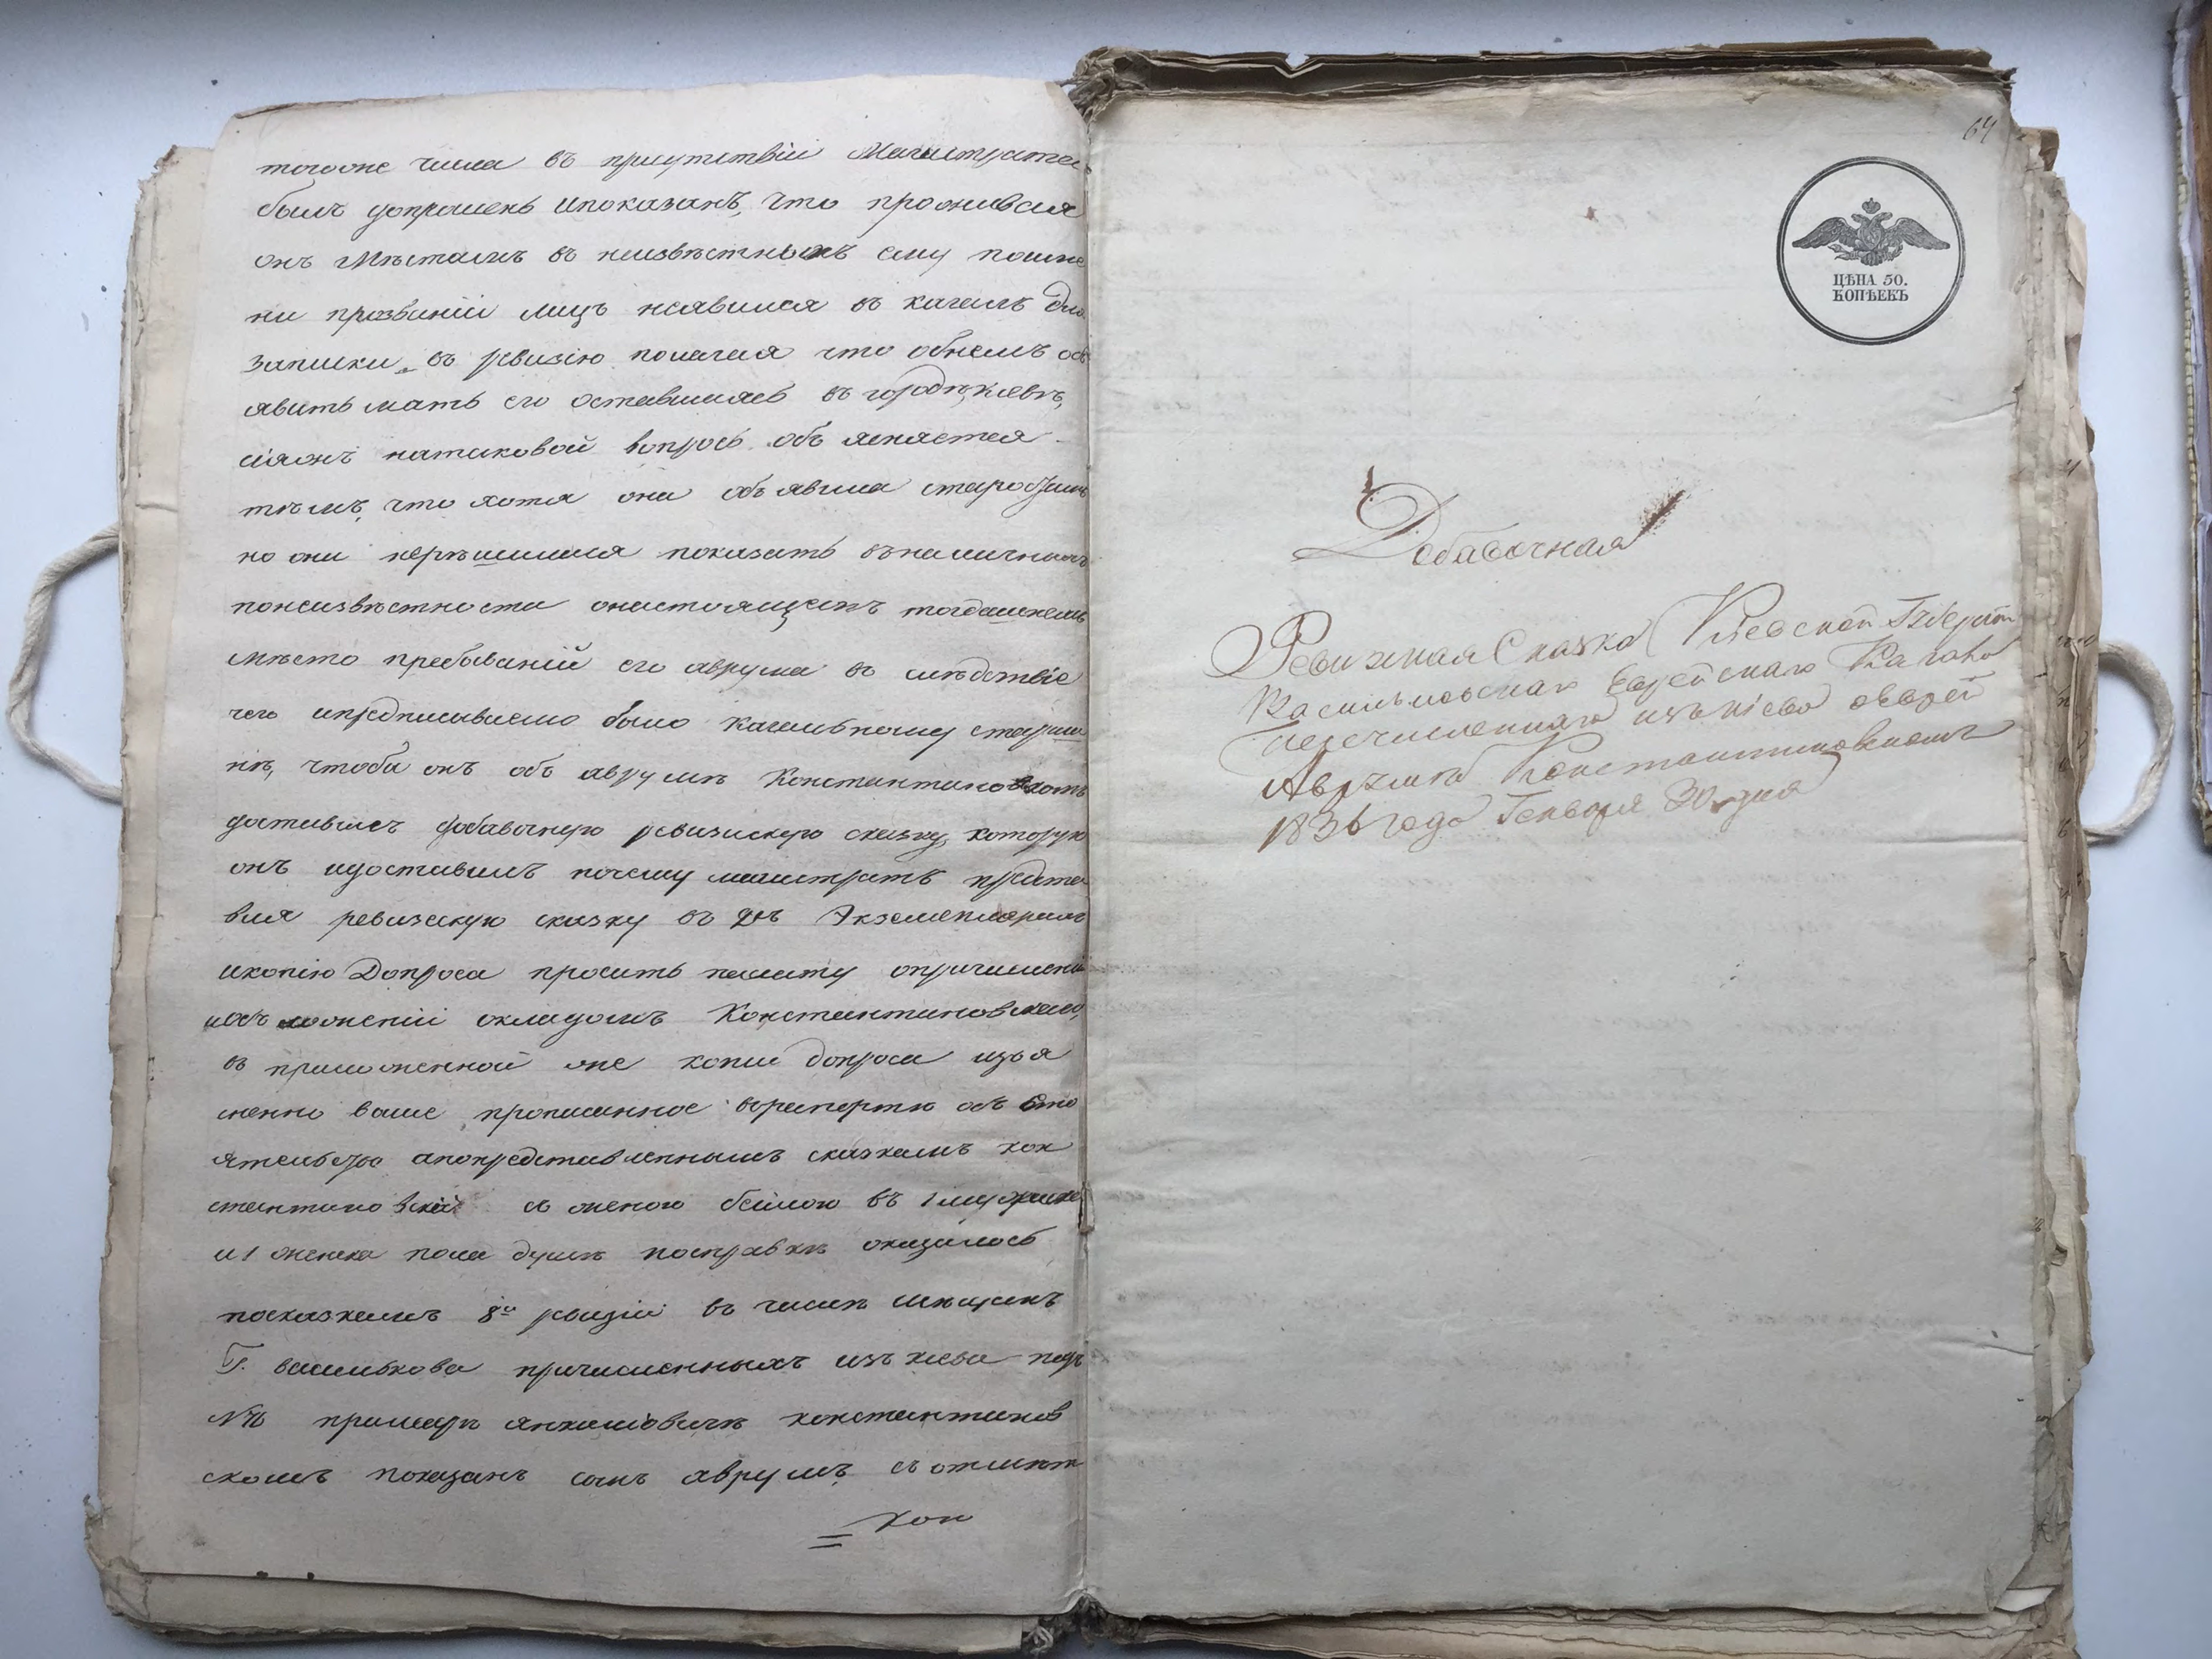 тогоже числа въ присутствіи Магистрата
былъ допрошенъ ипоказалъ, что проживая
онъ Мѣстамъ въ неизвѣстныхъ ему поиме
ни прозваніи лицъ неявился въ кагалъ для
записки въ ревизію полагая что обнемъ объ
явитъ мать его оставшаяся въ городѣ Кіевѣ,
сіяонъ натаковой вопросъ объ ясняется
тѣмъ, что хотя она объ явила старостамъ
но они нерѣшились показать въналичныхъ
понеизвѣстности онастоящемъ тогдашнемъ
мѣсто пребываній его аврума въ слѣдствіе
чего ипредписываемо было кагальному старши
нѣ, чтобы онъ объ аврумѣ Константиновскомъ
доставилъ добавочную ревизскую сказку, которую
онъ идоставилъ почему магистратъ предста
вляя ревизскую сказку въ двѣ Экземплярахъ
икопію Допроса проситъ палату опричисленіи
иобъ ложеніи окладомъ Константиновскаго,
въ приложенной же копіи допроса изъя
снено выше прописанное ворапортѣ объ сто
ятельство апопредставленнымъ сказкамъ кон
стантиновскій съ женою бейлою въ 1 мужеска
и 1 женска пола душѣ посправкѣ оказалось
посказкамъ 8й ревизіи въ числѣ мѣщанъ
Г. василькова причисленныхъ изъ кіева подъ
№ примеерѣ янкеліовичѣ константинов
скомъ показанъ сынъ аврумъ съ отмѣт
кою
64
ЦѢНА 50.
КОПѢЕКЪ
Добавочная
Ревизкая Сказка Кіевской Губерніи
Васильковскаго Еврейскаго Кагала
перечисленнаго изъ кіева оеврей
Аврумѣ Константиновскомъ
1836 года Генваря 30 дня